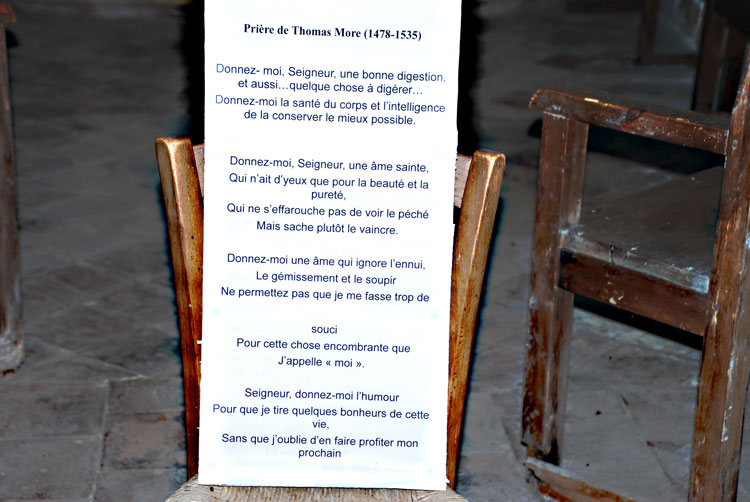 Prière de Thomas More (1478-1535)
Donnez- moi, Seigneur, une bonne digestion.
et aussi…quelque chose à digérer…
Donnez-moi la santé du corps et l'intelligence
de la conserver le mieux possible.
Donnez-moi, Seigneur, une âme sainte,
Qui n'ait d'yeux que pour la beauté et la
pureté,
Qui ne s'effarouche pas de voir le péché
Mais sache plutôt le vaincre.
Donnez-moi une âme qui ignore l'ennui,
Le gémissement et le soupir
Ne permettez pas que je me fasse trop de
souci
Pour cette chose encombrante que
J'appelle « moi ».
Seigneur, donnez-moi l'humour
Pour que je tire quelques bonheurs de cette
vie,
Sans que j'oublie d'en faire profiter mon
prochain